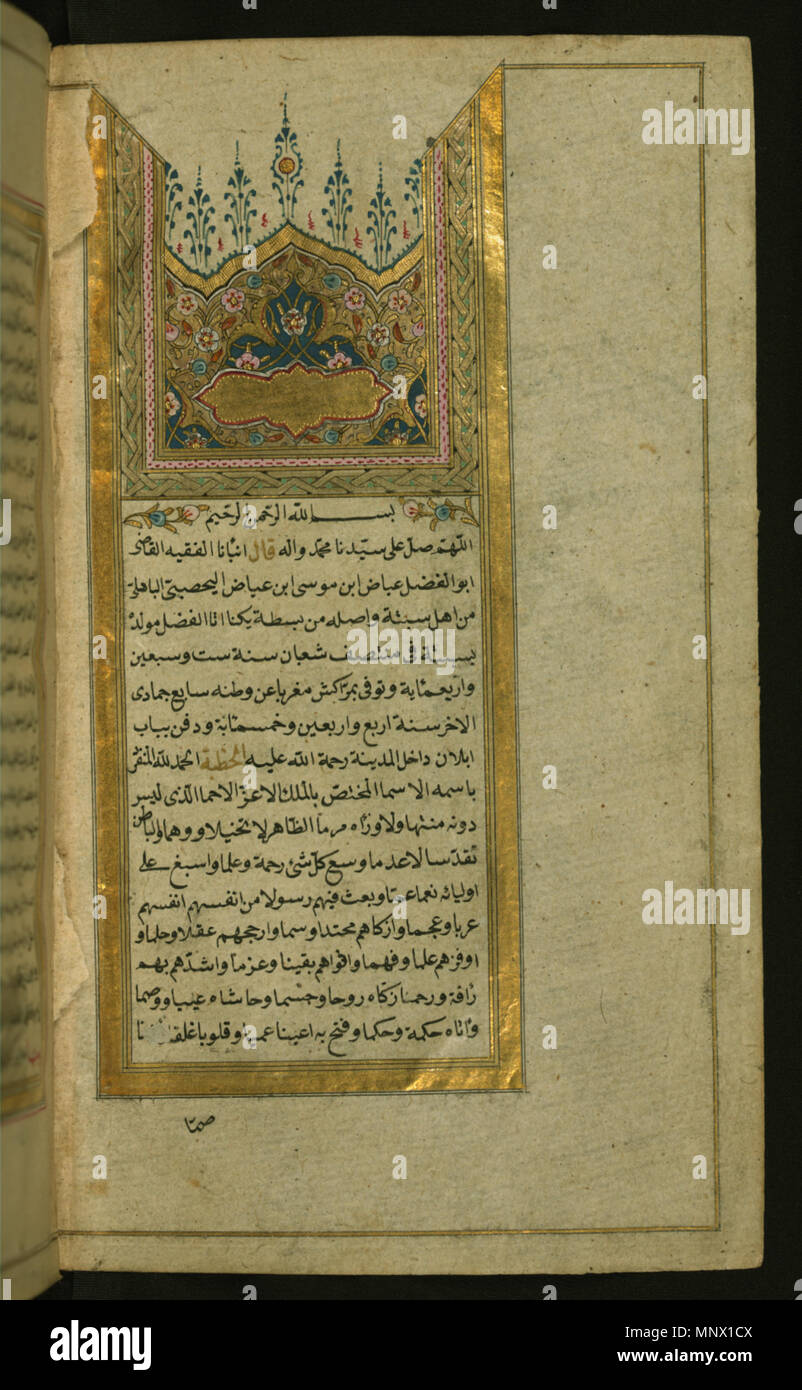 بسم الله الرحمن الرحيم
اللهم صل على سيدنا محمد واله قال انبانا الفقيه القاضى
ابو الفضل عياض ابن موسى ابن عياض اليحصبي الباهلى
من اهل سبتة واصله من بسطة يكنا ابا الفضل مولده
بسبتة فى منتصف شعبان سنة ست وسبعين
واربعماية وتوفى بمراكش مغربا عن وطنه سابع جمادى
الاخر سنة اربع واربعين وخمسماية ودفن بباب
ايلان داخل المدينة رحمة الله عليه الخطبة الحمد لله المنفرد
باسمه الاسما المختص بالملك الاعز الاحما الذى ليس
دونه منتها ولا وراه مرما الظاهر لا تخيلا ووهما والباطن
تقدسا لا عدما وسع كل شئ رحمة وعلما واسبغ على
اوليائه نعما عما وبعث فيهم رسولا من انفسهم انفسهم
عربا وعجما وازكاهم محتدا وسما وارجحهم عقلا وحلما و
اوفرهم علما وفهما واقواهم يقينا وعزما واشدهم بهم
رافة ورحما زكاه روحا وجسما وحاشاه عيبا ووصما
واتاه حكمة وحكما وفتح به اعينا عميا وقلوبا غلفا
صما
alamy
a
Image ID: MNX1CX
www.alamy.com